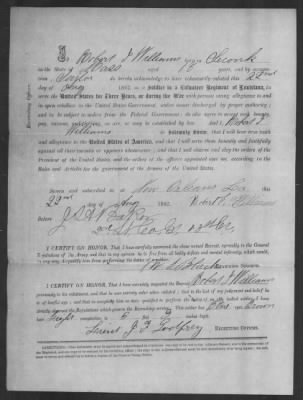 I, Robert J Williams born in
in the State of Mass aged years, and by occupa-
tion do hereby acknowledge to have voluntarily enlisted this 22nd
day of Aug 1862, as a Soldier in a Volunteer Regiment of Louisiana, to
serve the United States for Three Years, or during the War with persons owing allegiance to and
in open rebellion to the United States Government, unless sooner discharged by proper authority; and
to be subject to orders from the Federal Government: do also agree to accept such bounty,
pay, rations, as are, or may be established by law. and I, Robert J
Williams do solemnly swear, that I will bear true faith
and allegiance to the United States of America, and that I will serve them honestly and faithfully
against all their enemies or opposers whomsoever; and that I will observe and obey the orders of the
President of the United States, and the orders of the officers appointed over me, according to the
Rules and Articles for the government of the Armies of the United States.
Sworn and subscribed to at New Orleans La. this
22nd day of Aug 1862. Robert J. Williams
Before
I CERTIFY ON HONOR, That I have carefully examined the above named Recruit, agreeably to the General
Regulations of the Army and that in my opinion he is free from all bodily defects and mental infirmity, which would,
in any way, disqualify him from performing the duties of a soldier.
EXAMINING SURGEON.
I CERTIFY ON HONOR, That I have minutely inspected the Recruit Robert J Williams
previously to his enlistment, and that he was entirely sober when enlisted; that to the best of my judgement and belief he
is of lawful age; and that in accepting him as duly qualified to perform the duties of an able bodied soldier, I have
strictly observed the Regulations which govern the Recruiting service. This soldier has Blue eyes Brown
hair complexion is 5 feet inches high.
Lieut J. F. Godfrey
RECRUITING OFFICER.